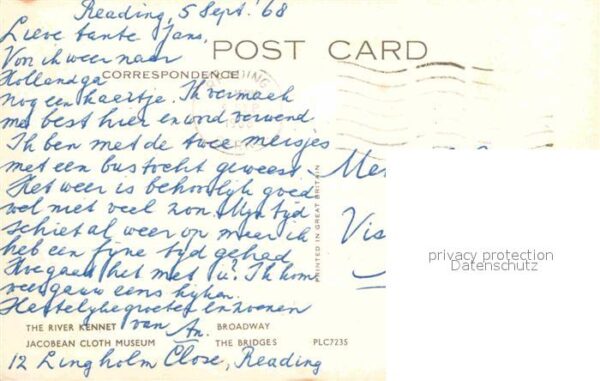 Reading, 5 Sept. '68
Lieve tante Jans,
Voor ik weer naar
POST CARD
Holland ga
CORRESPONDENCE
nog een kaartje. Ik vermaak
me best hier en word verwend
Ik ben met de twee meisjes
met een bustocht geweest.
Het weer is behoorlijk goed
wel niet veel zon. Mijn tijd
schiet al weer op maar ik
heb een fijne tijd gehad
Hoe gaat het met u? Ik kom
weer gauw eens kijken.
Hartelijke groeten en zoenen
van An.
THE RIVER KENNET
BROADWAY
JACOBEAN CLOTH MUSEUM
THE BRIDGES
PLC7235
12 Lingholm Close, Reading
PRINTED IN GREAT BRITAIN
Vis
privacy protection
Datenschutz